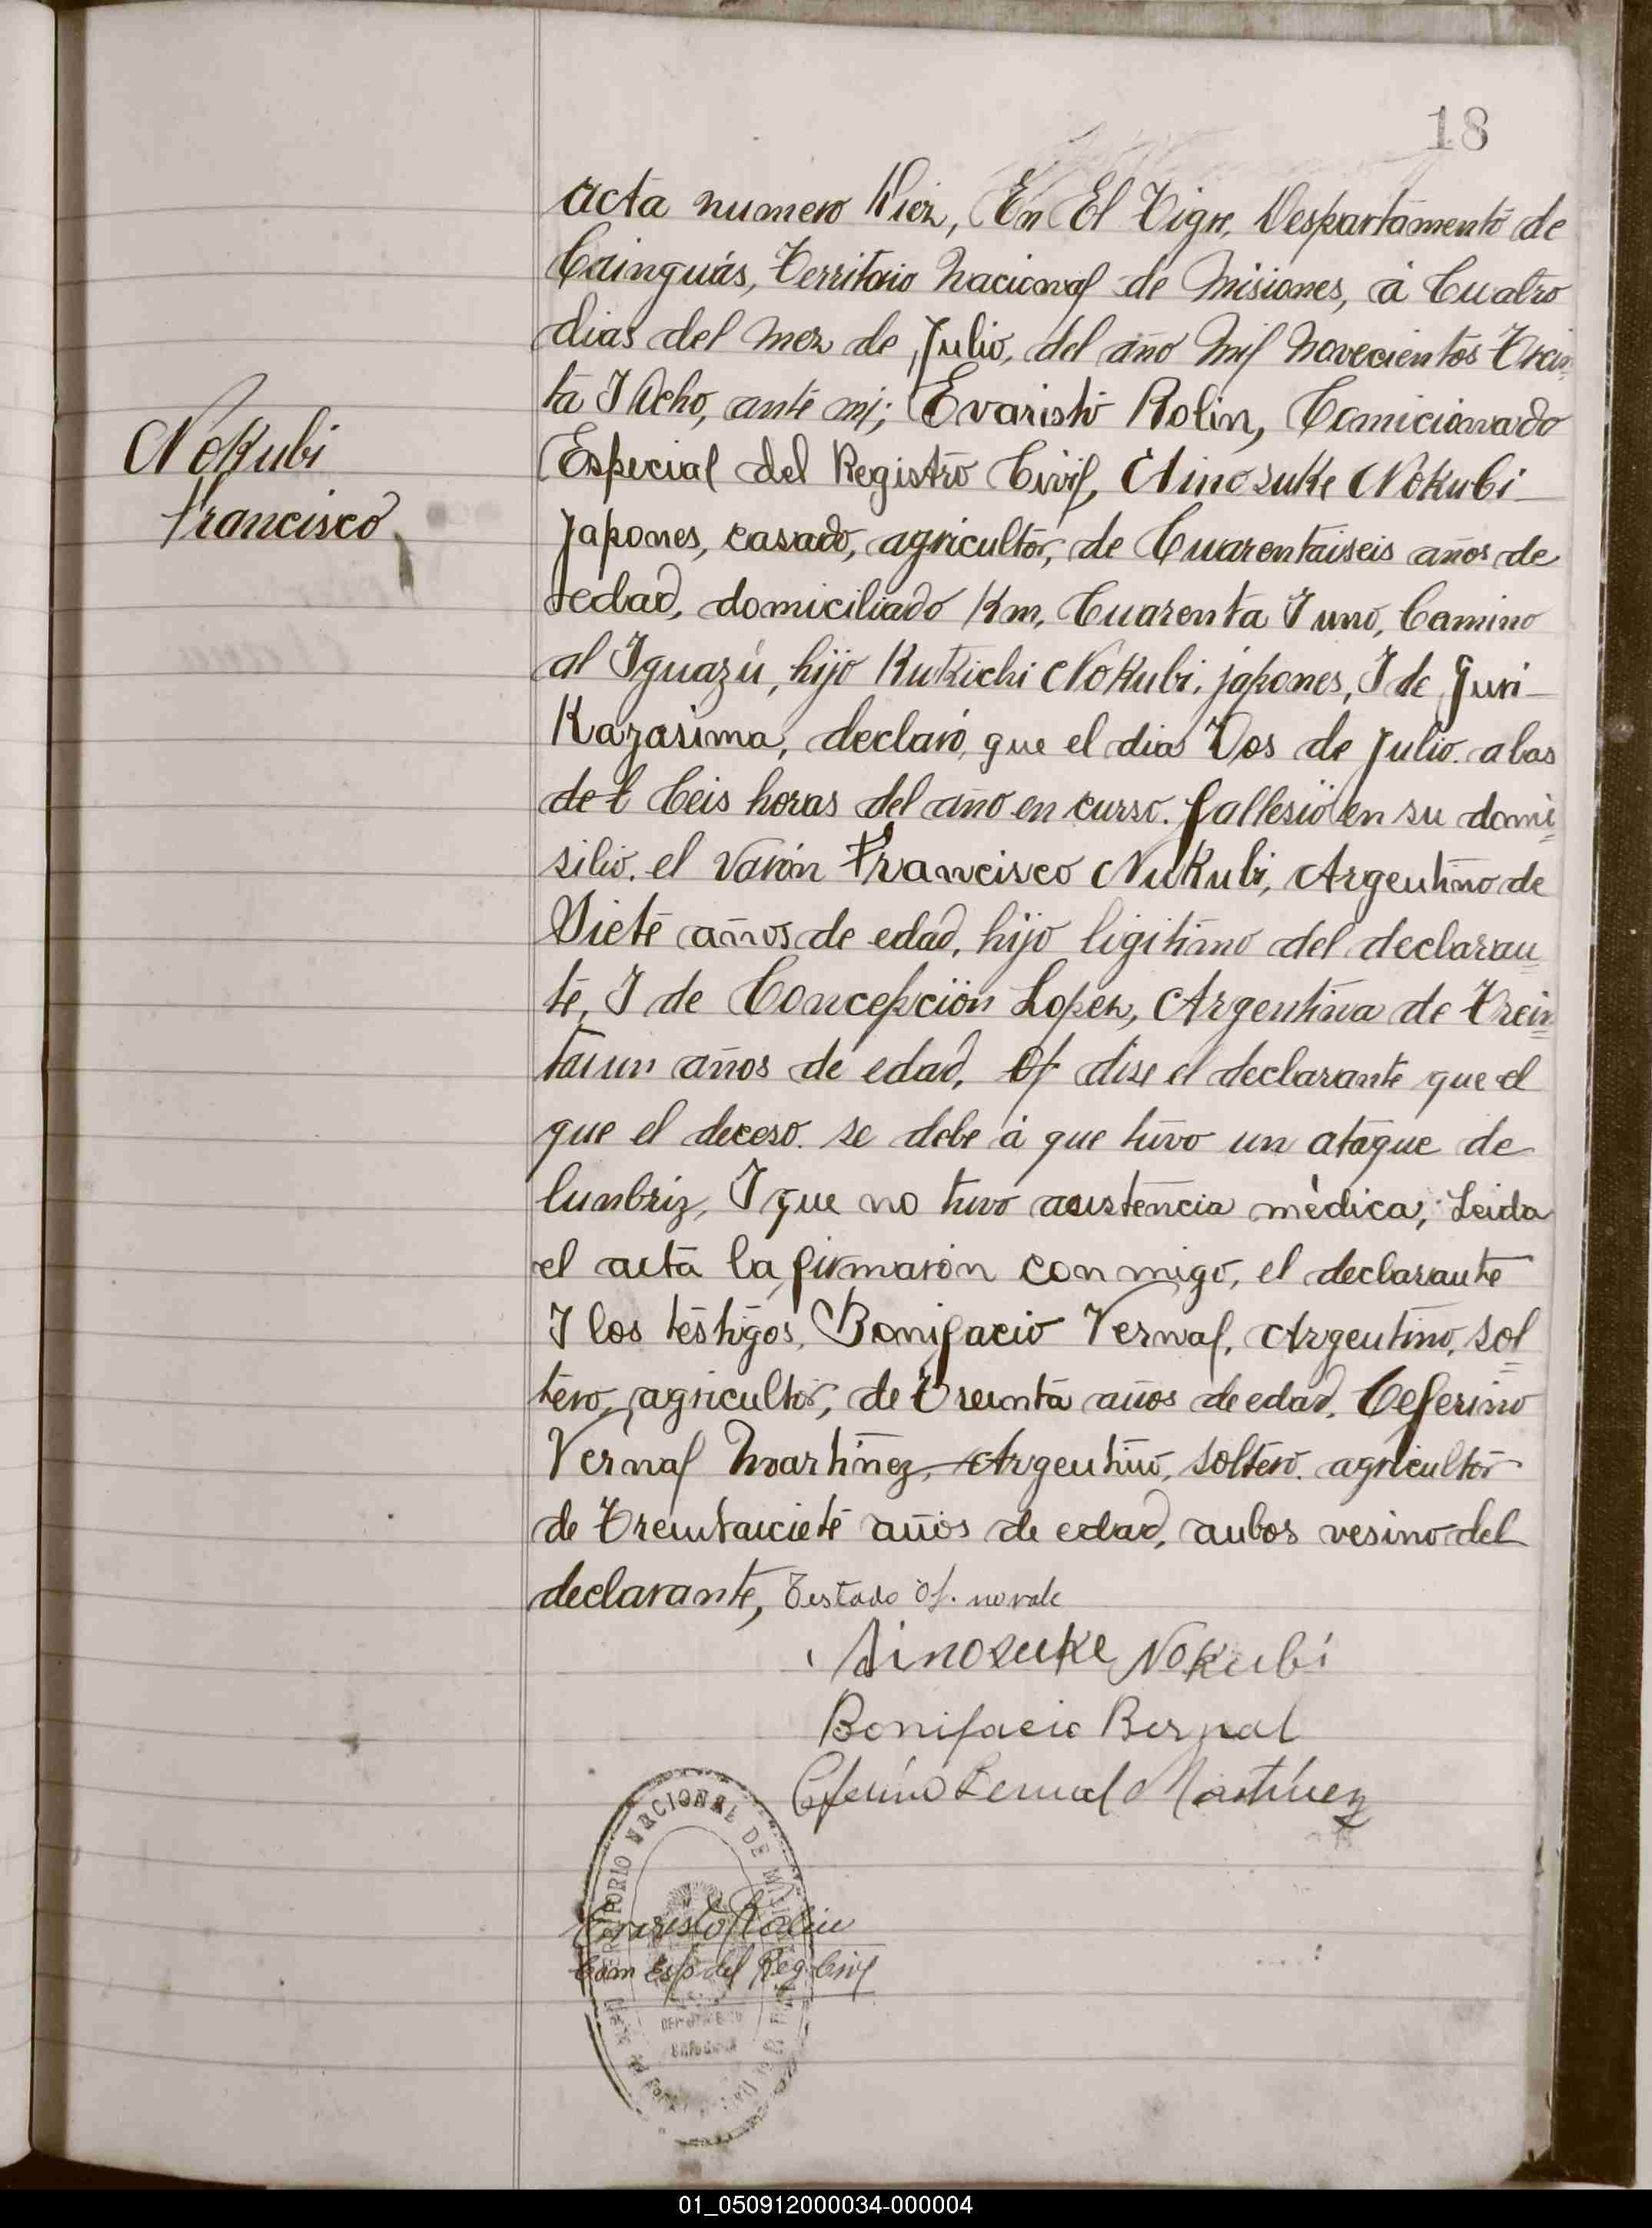 18
acta numero Diez, En El Tigre, Despartamento de
Cainguás, Territoio Nacional de Misiones, á Cuatro
dias del mez de Julio, del año mil novecientos Trein
ta I Ocho, ante mi; Evaristo Rolin, Comicionado
Nokubi
Francisco
Especial del Registro Civil, Ainosuke Nokubi
Japones, casado, agricultor, de Cuarentaiseis años de
edad, domiciliado Km, Cuarenta I uno, Camino
al Iguazú, hijo Kukichi Nokubi, japones, I de Juri
Kazasima, declaró, que el dia Dos de Julio. a las
del Ceis horas del año en curso. fallesió en su domi
silio. el varón Francisco Nukubi, Argentino de
Siete años de edad, hijo ligitimo del declaran
te, I de Concepción Lopez, Argentina de Trein
taiun años de edad, Of dise el declarante que el
que el deceso. se debe á que tuvo un ataque de
lunbriz, I que no tuvo asistencia médica, Leida
el acta la firmaron conmigo, el declarante
I los testigos, Bonifacio Vernal, Argentino, sol
tero, agricultor, de Treinta años de edad, Ceferino
Vernal Martinez, Argentino, soltero. agricultor
de Treintaiciete años de edad, anbos vesino del
declarante, Testado Of. no vale
Ainosuke Nokubi
Bonifacio Bernal
Ceferino Bernal Martínez
TERRITORIO NACIONAL DE MISIONES
Evaristo Rolin
Com Esp del Reg Civil
01_050912000034-000004